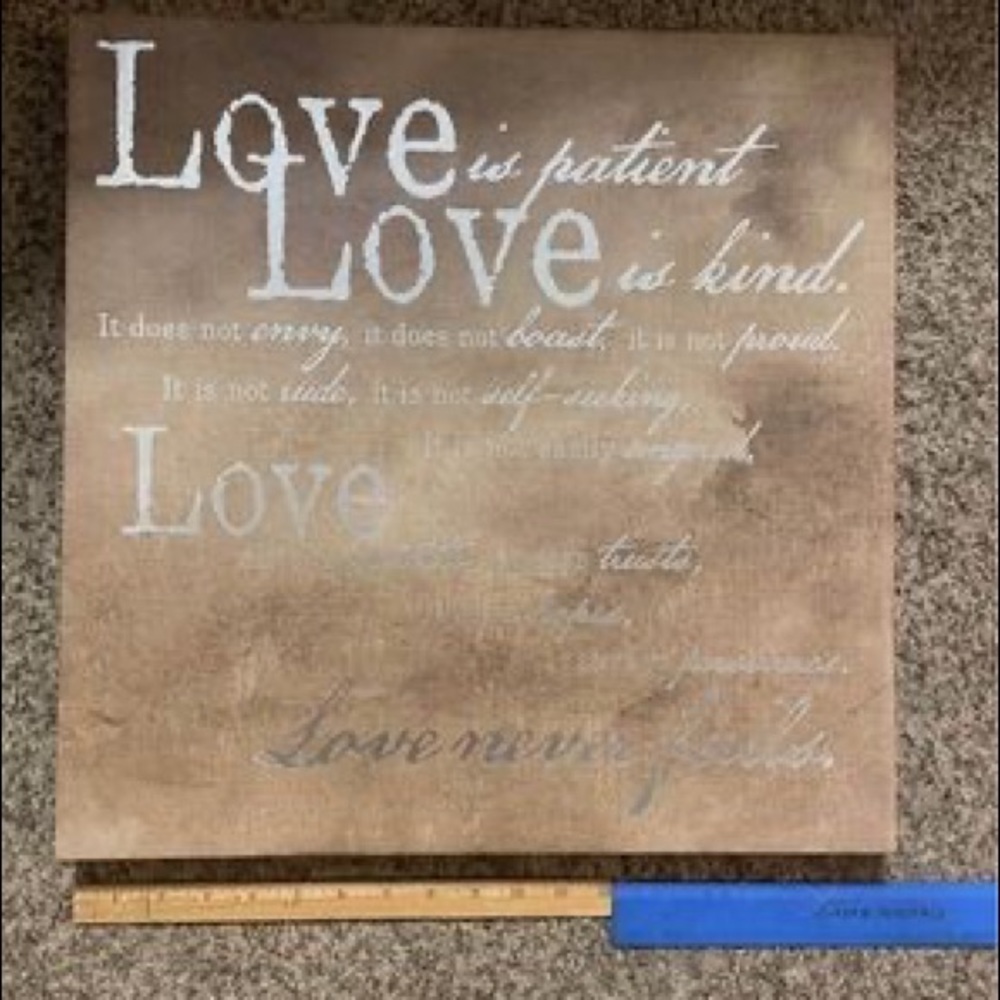 Love is patient
Love is kind.
It does not envy, it does not boast, it is not proud.
It is not rude, it is not self-seeking,
It is not easily angered,
Love
trusts,
hopes,
perseveres.
Love never fails.